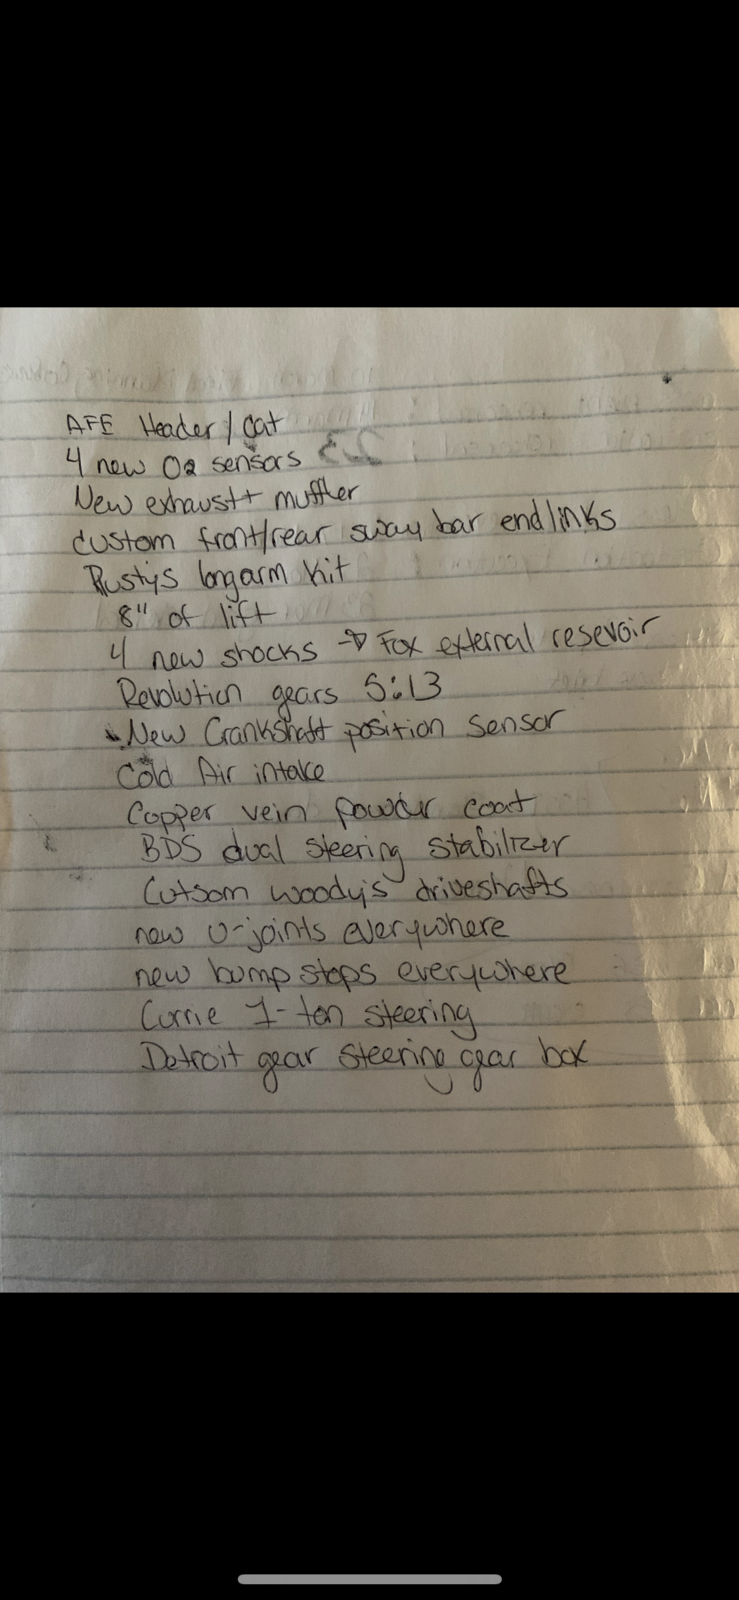 AFE Header/Cat
4 new O2 sensors
New exhaust+ muffler
custom front/rear sway bar endlinks
Rustys longarm kit
8" of lift
4 new shocks → Fox external resevoir
Revolution gears 5:13
New Crankshaft position sensor
Cold Air intake
Copper vein powder coat
BDS dual steering stabilizer
Cutsom woody's driveshafts
new U-joints everywhere
new bump stops everywhere
Currie 1-ton steering
Detroit gear steering gear box